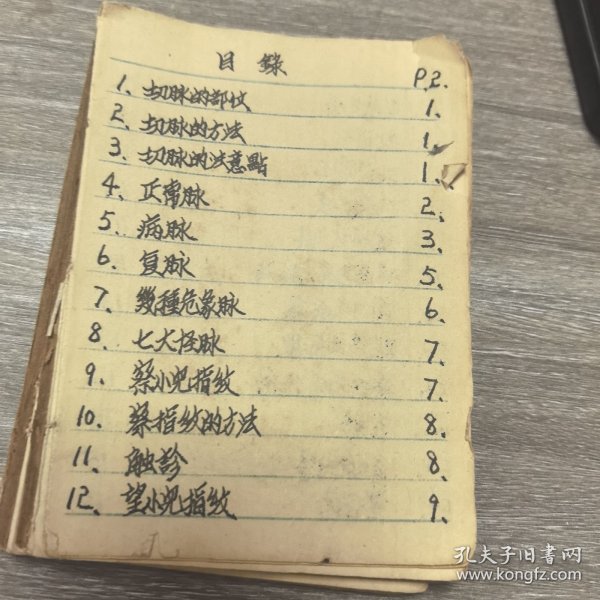 目錄 P.2.
1、切脉的部位 1、
2、切脉的方法 1、
3、切脉的注意點 1、
4、正常脉 2、
5、病脉 3、
6、复脉 5、
7、幾種危象脉 6、
8、七大怪脉 7、
9、察小児指紋 7、
10、察指紋的方法 8、
11、触診 8、
12、望小児指紋 9、
孔夫子旧书网
www.kongfz.com